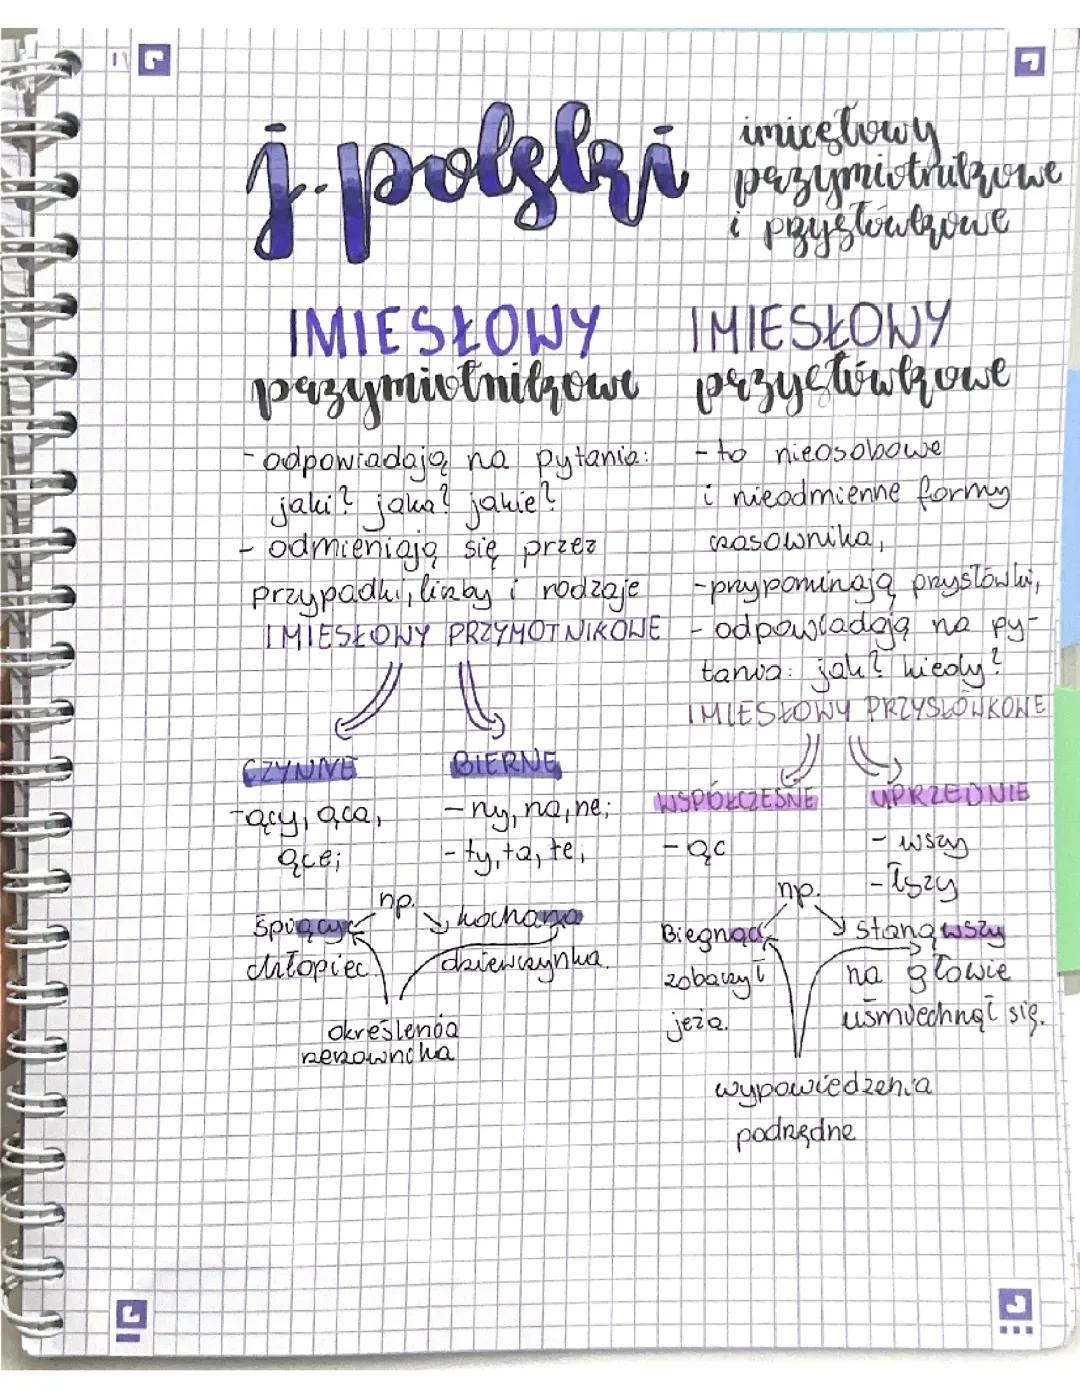 j. polski
imiesłowy
przymiotnikowe
i przysłówkowe
IMIESŁOWY
przymiotnikowe
- odpowiadają na pytania:
jaki? jaka? jakie?
- odmieniają się przez
przypadki, liczby i rodzaje
IMIESŁOWY PRZYMOTNIKOWE
CZYNNE
-ący, ąca,
ące;
BIERNE
- ny, na, ne;
- ty, ta, te;
np.
śpiący
chłopiec.
kochana
dziewczynka.
określenia
rzeczownika
IMIESŁOWY
przysłówkowe
- to nieosobowe
i nieodmienne formy
czasownika,
- przypominają przysłówki,
- odpowiadają na py-
tania: jak? kiedy?
IMIESŁOWY PRZYSŁÓWKOWE
WSPÓŁCZESNE
- ąc
UPRZEDNIE
- wszy
- łszy
np.
Biegnąc
zobaczył
jeża.
stanąwszy
na głowie
uśmiechnął się.
wypowiedzenia
podrzędne